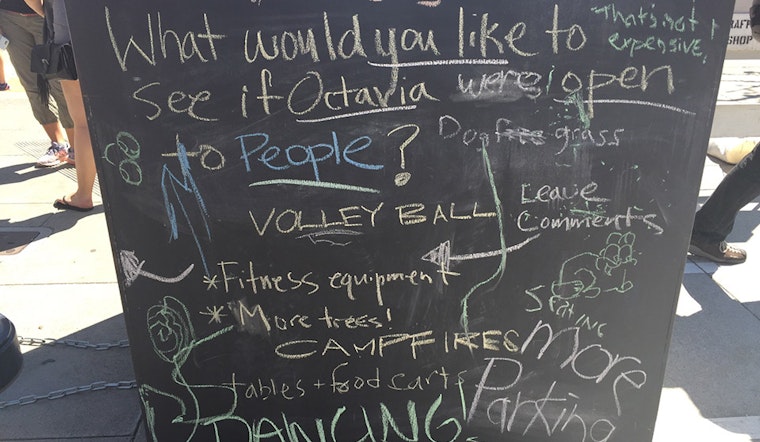 What would you like to
see if Octavia were open
to People?
That's not
expensive!
grass
Leave
Comments
VOLLEY BALL
*Fitness equipment
* More trees!
CAMPFIRES
tables + food carts
More
Parking
DANCING!
SHOP